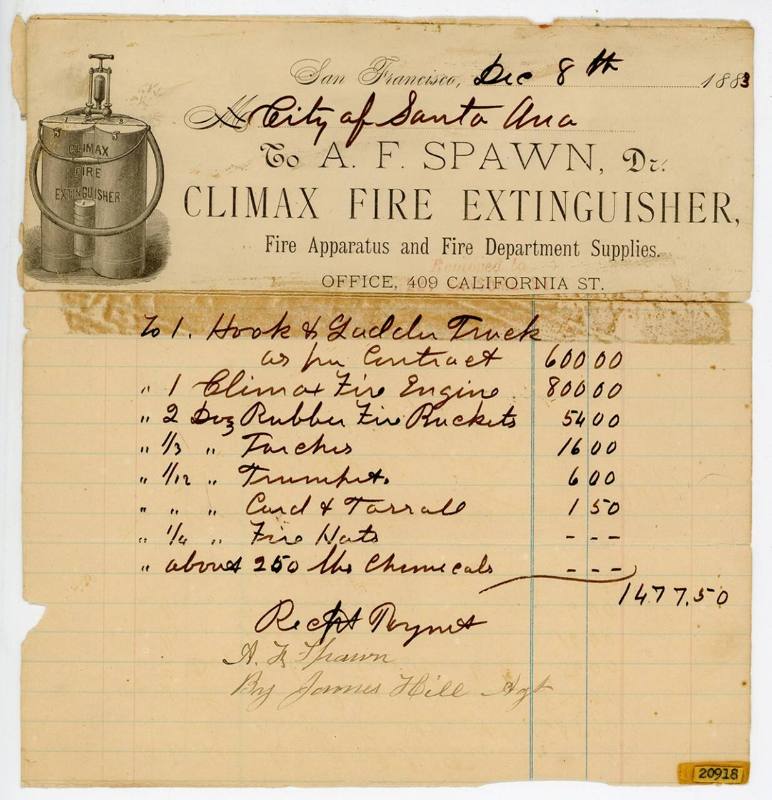 San Francisco, Dec 8th 1883
M City of Santa Ana
To A. F. SPAWN, Dr.
CLIMAX FIRE EXTINGUISHER
CLIMAX FIRE EXTINGUISHER,
Fire Apparatus and Fire Department Supplies.
Removed to
OFFICE, 409 CALIFORNIA ST.
To 1. Hook & Ladder Truck
as per Contract 600 00
" 1 Climax Fire Engine 800 00
" 2 Doz Rubber Fire Buckets 54 00
" 1/3 " Torches 16 00
" 1/12 " Trumpet. 6 00
" " " Cord & Tassall 1 50
" 1/4 " Fire Hats - - -
" about 250 lbs Chemecals - - -
1477.50
Recpt Paymet
A. F. Spawn
By James Hill Agt
20918